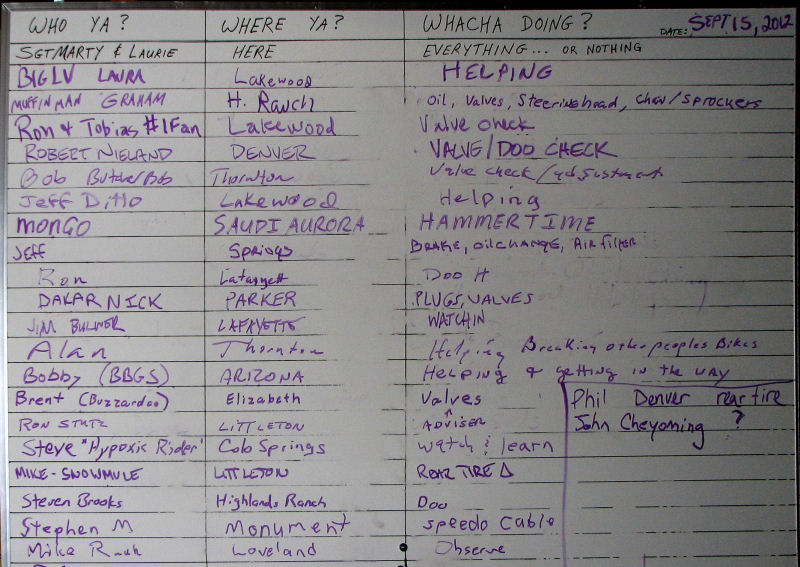 WHO YA? WHERE YA? WHACHA DOING? DATE: SEPT 15, 2012
SGTMARTY & LAURIE HERE EVERYTHING... OR NOTHING
BIGLV LAURA Lakewood HELPING
MUFFINMAN GRAHAM H. Ranch Oil, Valves, Steeringhead, Chain/Sprockets
Ron & Tobias #1 Fan Lakewood Valve check
ROBERT NIELAND DENVER VALVE/DOO CHECK
Bob ButcherBob Thornton Valve check/adjustment
Jeff Ditto Lakewood Helping
MONGO SAUDI AURORA HAMMERTIME
JEFF Springs BRAKE, OIL CHANGE, AIR filter
Ron Doo It
DAKAR NICK PARKER PLUGS, VALVES
JIM LAFAYETTE WATCHIN
Alan Thornton Helping Breaking other peoples Bikes
Bobby (BBGS) ARIZONA HELPING & getting in the WAY
Brent (Buzzardoo) Elizabeth Valves Phil Denver rear tire
RON STUTZ LITTLETON ^ ADVISER John Cheyoming ?
Steve "Hypoxic Rider" Colo Springs watch & learn
MIKE-SNOWMULE LITTLETON REAR TIRE Δ
Steven Brooks Highlands Ranch Doo
Stephen M Monument speedo Cable
Mike Loveland Observe